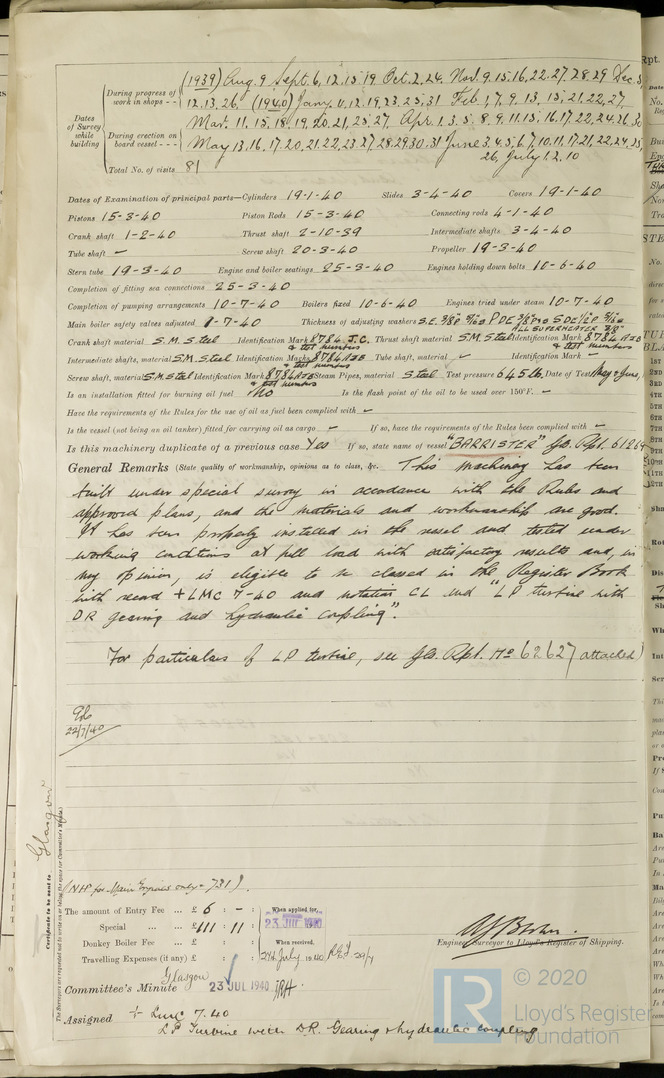 (1939) Aug. 9 Sept. 6, 12. 15. 19 Oct. 2. 24. Nov. 9. 15. 16. 22. 27. 28. 29 Dec. 5,
During progress of work in shops - -
12. 13. 26. (1940) Jany. 11. 12. 19. 23. 25. 31 Feb 1. 7. 9. 13. 15. 21. 22. 27.
Dates of Survey while building
Mar. 11. 15. 18. 19. 20. 21. 25. 27. Apr. 1. 3. 5. 8. 9. 11. 15. 16. 17. 22. 24. 26. 30
During erection on board vessel - - -
May 13. 16. 17. 20. 21. 22. 23. 27. 28. 29. 30. 31 June 3. 4. 5. 6. 7. 10. 11. 17. 21. 22. 24. 25,
26, July 1. 2. 10
Total No. of visits 81
Dates of Examination of principal parts—Cylinders 19-1-40 Slides 3-4-40 Covers 19-1-40
Pistons 15-3-40 Piston Rods 15-3-40 Connecting rods 4-1-40
Crank shaft 1-2-40 Thrust shaft 2-10-39 Intermediate shafts 3-4-40
Tube shaft — Screw shaft 20-3-40 Propeller 19-3-40
Stern tube 19-3-40 Engine and boiler seatings 25-3-40 Engines holding down bolts 10-6-40
Completion of fitting sea connections 25-3-40
Completion of pumping arrangements 10-7-40 Boilers fixed 10-6-40 Engines tried under steam 10-7-40
Main boiler safety valves adjusted 1-7-40 Thickness of adjusting washers
ALL SUPERHEATER 3/8"
Crank shaft material S.M. Steel Identification Mark 8784 J.C. & test numbers Thrust shaft material S.M. Steel Identification Mark 8784 & test numbers
Intermediate shafts, material S.M. Steel Identification Marks 8784 & test numbers Tube shaft, material — Identification Mark —
Screw shaft, material S.M. Steel Identification Mark 8784 & test numbers Steam Pipes, material Steel Test pressure 645 lb. Date of Test May & June,
Is an installation fitted for burning oil fuel No Is the flash point of the oil to be used over 150°F. —
Have the requirements of the Rules for the use of oil as fuel been complied with —
Is the vessel (not being an oil tanker) fitted for carrying oil as cargo — If so, have the requirements of the Rules been complied with —
Is this machinery duplicate of a previous case Yes If so, state name of vessel "BARRISTER" Gls. Rpt. 61269
General Remarks (State quality of workmanship, opinions as to class, &c. This machinery has been
built under special survey in accordance with the Rules and
approved plans, and the materials and workmanship are good.
It has been properly installed in the vessel and tested under
working conditions at full load with satisfactory results and, in
my opinion, is eligible to be classed in the Register Book
with record + LMC 7-40 and notation CL and "LP turbine with
DR gearing and hydraulic coupling".
For particulars of LP turbine, see Gls. Rpt. No 62627 (attached)
22/7/40
Glasgow
Certificate to be sent to
The Surveyors are requested not to write on or below the space for Committee's Minute.
(NHP for Main Engines only = 731).
The amount of Entry Fee ... £ 6 : - :
When applied for,
23 JUL 1940
Special ... ... £111 : 11 :
Donkey Boiler Fee ... £ : :
When received,
Travelling Expenses (if any) £ : :
24th July 1940
Engineer Surveyor to Lloyd's Register of Shipping.
Glasgow
Committee's Minute 23 JUL 1940
Assigned + LMC 7.40
LP Turbine with DR. Gearing & hydraulic coupling
LR
© 2020
Lloyd's Register
Foundation